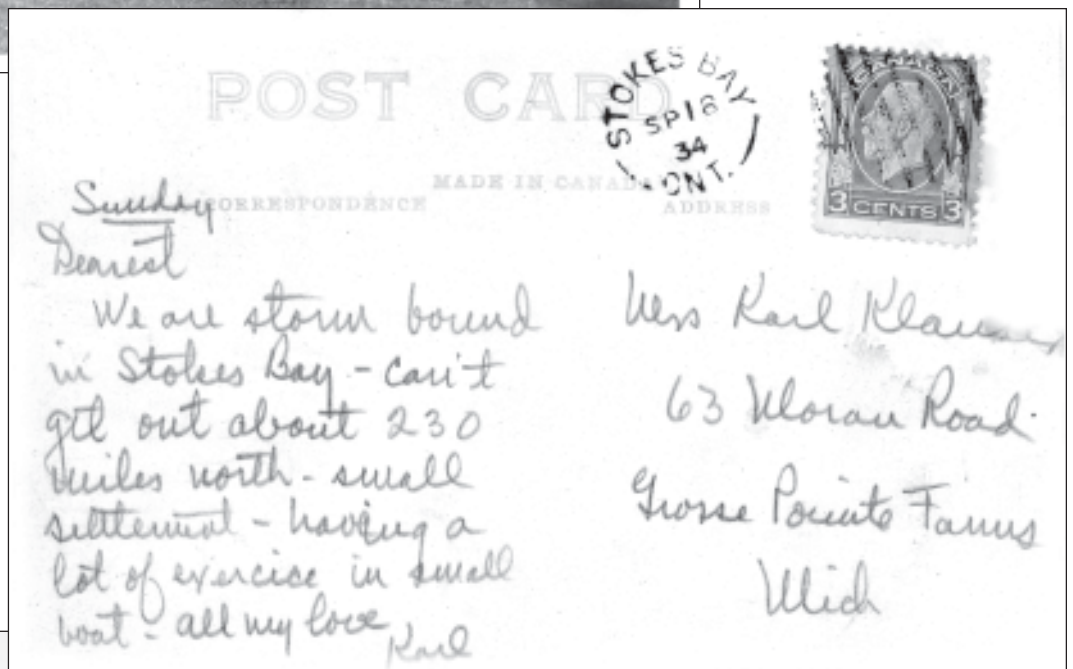 POST CARD
STOKES BAY
SP 16
34
ONT.
CANADA
3 CENTS 3
MADE IN CANADA
CORRESPONDENCE
ADDRESS
Sunday
Dearest
We are storm bound
in Stokes Bay - can't
get out about 230
miles north - small
settlement - having a
lot of exercise in small
boat - all my love
Karl
Mrs Karl
63 Moran Road.
Grosse Pointe Farms
Mich